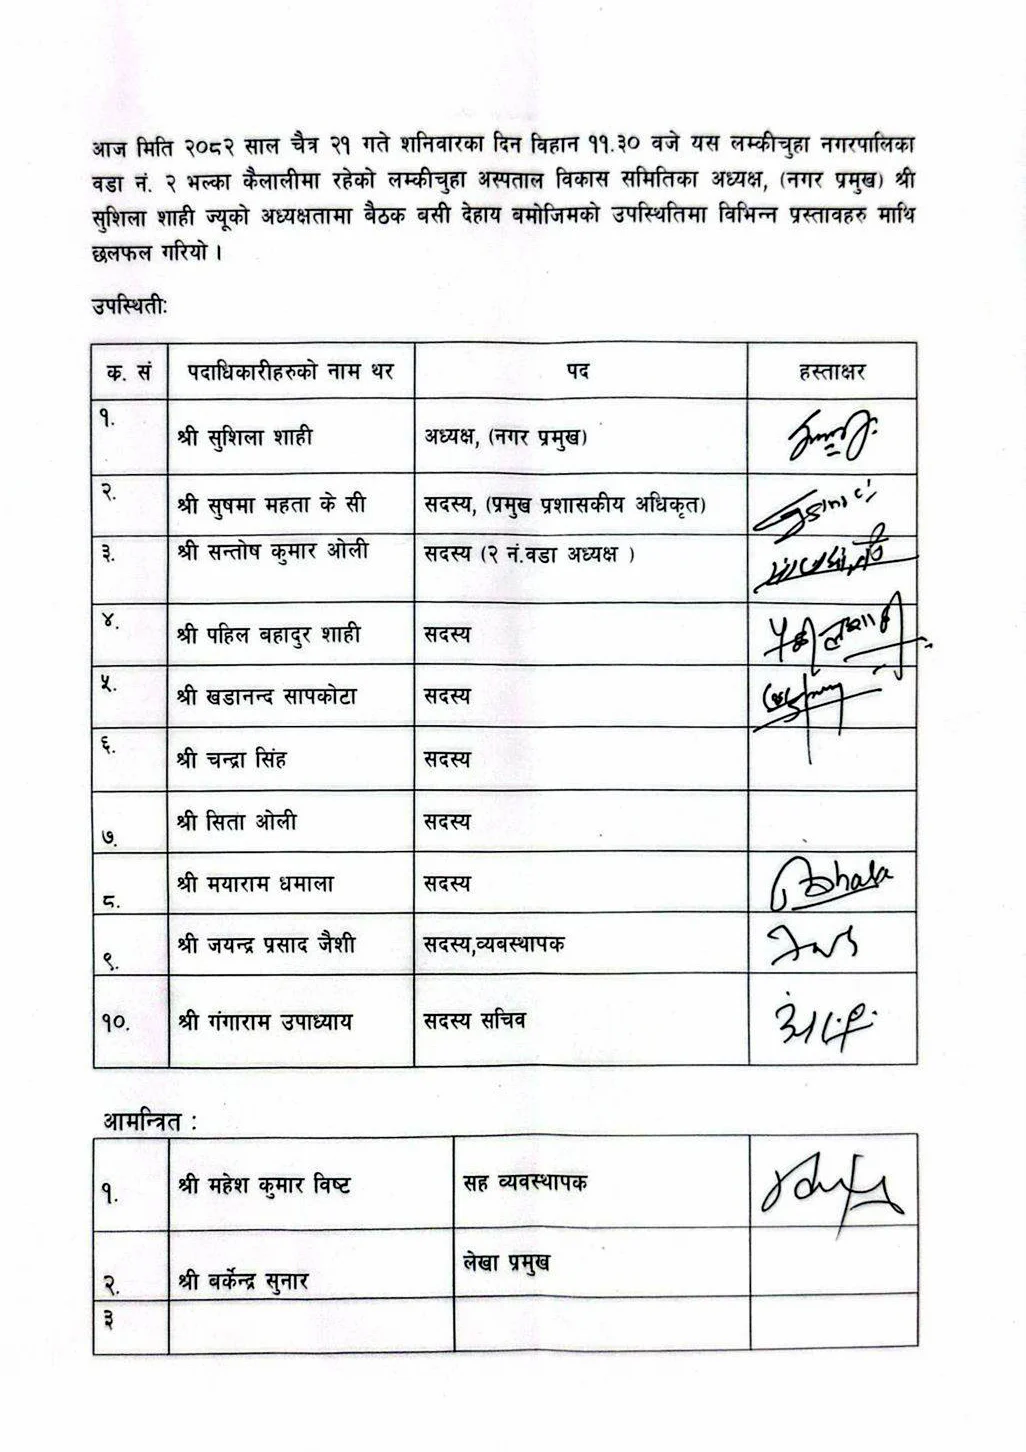 आज मिति २०८२ साल चैत्र २१ गते शनिवारका दिन विहान ११.३० वजे यस लम्कीचुहा नगरपालिका
वडा नं. २ भल्का कैलालीमा रहेको लम्कीचुहा अस्पताल विकास समितिका अध्यक्ष, (नगर प्रमुख) श्री
सुशिला शाही ज्यूको अध्यक्षतामा बैठक वसी देहाय बमोजिमको उपस्थितिमा विभिन्न प्रस्तावहरु माथि
छलफल गरियो ।
उपस्थिती:
क. सं पदाधिकारीहरुको नाम थर पद हस्ताक्षर
१. श्री सुशिला शाही अध्यक्ष, (नगर प्रमुख)
२. श्री सुषमा महता के सी सदस्य, (प्रमुख प्रशासकीय अधिकृत)
३. श्री सन्तोष कुमार ओली सदस्य (२ नं.वडा अध्यक्ष )
४. श्री पहिल बहादुर शाही सदस्य
५. श्री खडानन्द सापकोटा सदस्य
६. श्री चन्द्रा सिंह सदस्य
७. श्री सिता ओली सदस्य
८. श्री मयाराम धमाला सदस्य
९. श्री जयन्द्र प्रसाद जैशी सदस्य,व्यबस्थापक
१०. श्री गंगाराम उपाध्याय सदस्य सचिव
आमन्त्रित :
१. श्री महेश कुमार विष्ट सह व्यवस्थापक
२. श्री बर्केन्द्र सुनार लेखा प्रमुख
३